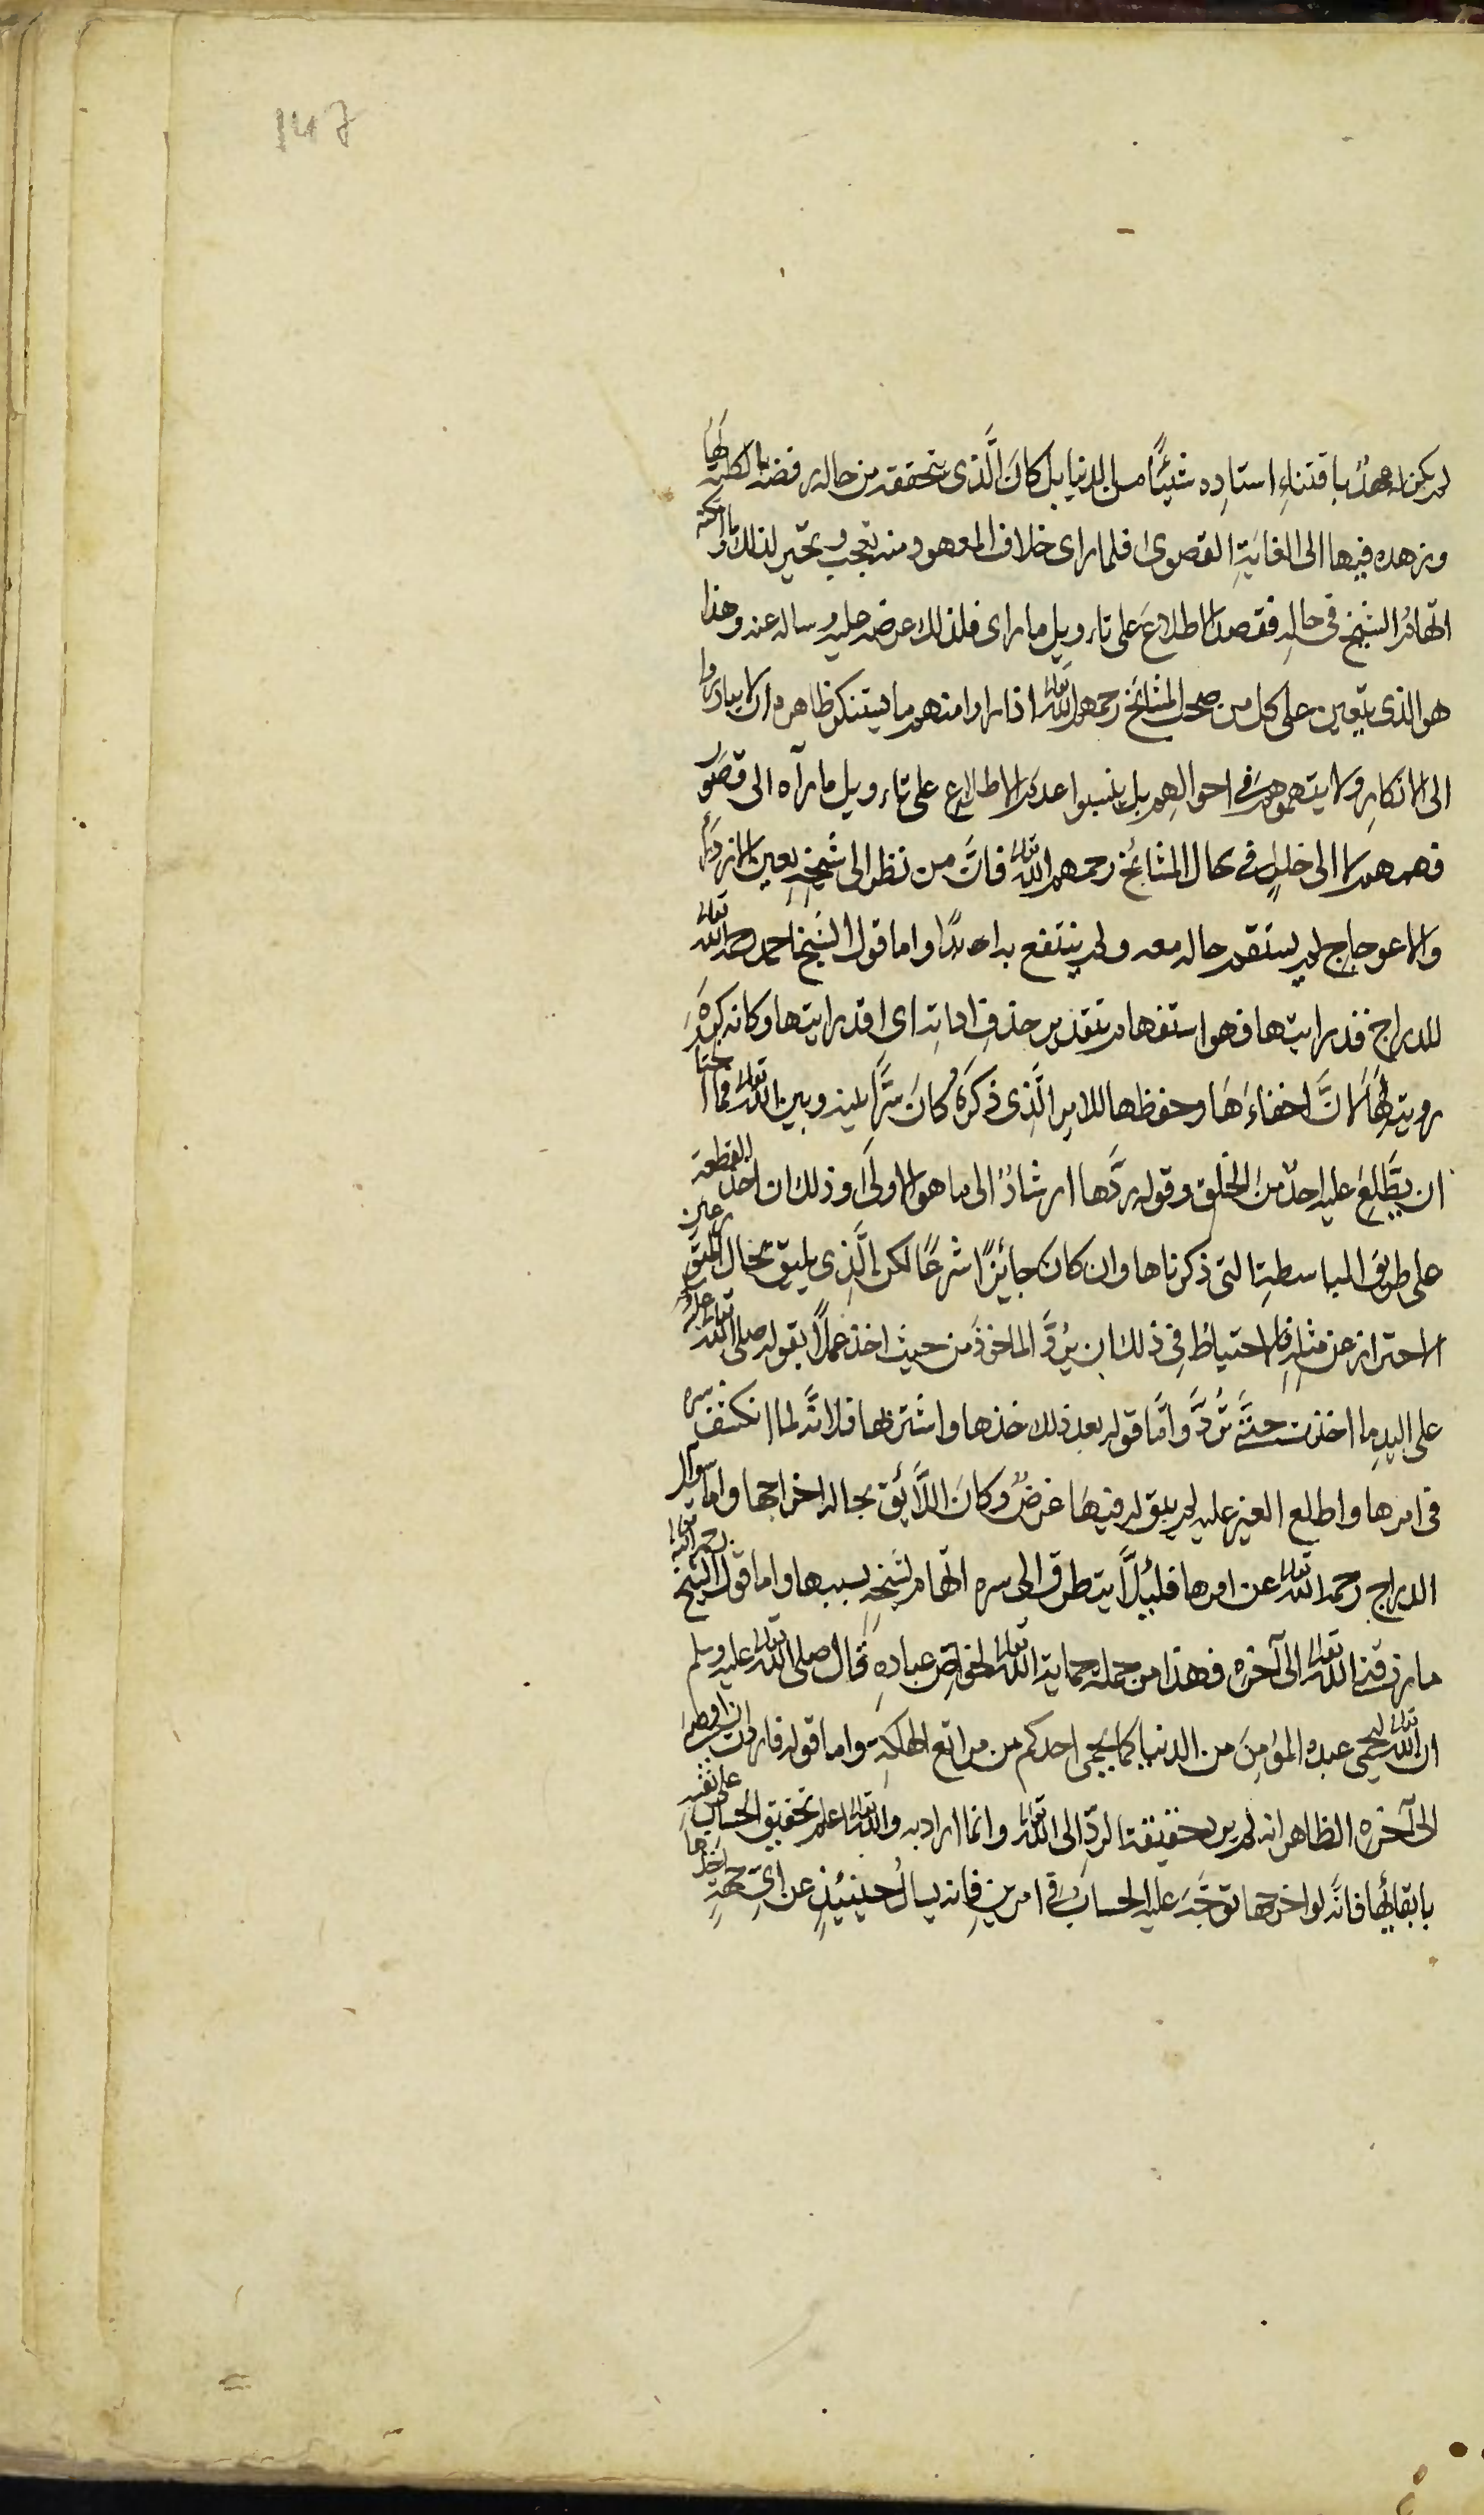 147
لم يكن له عهدٌ باقتناءِ استاده شيئًا من الدنيا بل كانَ الَّذى يتحققه من حاله رفضه بالكلية لَهَا
وزهده فيها الى الغايةِ القصوى فلما راى خلاف المعهود منه تعجب وتحير لذلك وما امكنه
اتّهامُ الشيخ فى حاله فقصد الاطلاعَ على تاءويل ما راى فلذلك عرضه عليه وساله عنه وهذا
هو الذى يتعين على كل من صحب المشائخ رحمهم اللّه تعالى اذا راوا منهم ما يستنكر ظاهره ان لا يبادروا
الى الانكارِ ولا يتهموهم فى احوالهِم بل ينسبوا عدمَ الاطلاع على تاءويل ما رآه الى قصور
فهمهم لا الى خللٍ فى حال المشائخ رحمهم اللّه تعالى فانَّ من نظر الى شيخِهِ بعينِ الازدراء
والاعوجاج لم يستقم حاله معه ولم ينتفع به ابدًا واما قول الشيخ احمد رحمه اللّه تعالى
للدراج فقد رايتها فهو استفهام بتقدير حذفِ اداتِه اى اقد رايتها وكانه كرهَ
رويته لهَا لانَّ اخفاءَهَا وحفظها للامر الَّذى ذكرَهُ كانَ سِرًّا بينه وبين اللّه تعالى فما احتاج
ان يطَّلِعَ عليه احدٌ منَ الخلق وقوله ردَّها ارشادٌ الى ما هو الاولى وذلك ان اخذ القطعة
على طريقِ المباسطةِ التى ذكرناها وان كان جائزًا شرعًا لكن الَّذِى يليق بحال المتورعين
الاحتراز عن مثلِهِ فالاحتياطُ فى ذلك ان يُرَدَّ الماخوذَ من حيث اخذ عملًا بقوله صلى اللّه تعالى عليه وسلم
على اليدِ ما اخذت حتَّى تُردَّ وامَّا قوله بعد ذلك خذها واشترِ بها فلانَّه لما انكشف سره
فى امرها واطلع الغير عليه لم يبق له فيهَا غرضٌ وكانَ اللَّائق بحاله اخراجها واما سوآل
الدراج رحمه اللّه تعالى عن امرها فلئلَّا يتطرق الى سره اتّهام لشيخِهِ بسببها واما قول الشيخ رحمه اللّه تعالى
ما رزقنى اللّه تعالى الى آخره فهذا من جملة حماية اللّه تعالى لخواصّ عباده قال صلى اللّه تعالى عليه وسلم
ان اللّه تعالى ليحمى عبده المؤمِنَ من الدنيا كما يحمى احدكم من مراتع الهلكةِ واما قوله فاردت ان اوصى
الى آخره الظاهر انه لم يرد حقيقة الردِّ الى اللّه تعالى وانما اراد به واللّه تعالى اعلم تخفيق الحساب على نفسه
بابقائها فانّه لو اخرجها توجَّهَ عليه الحسابُ فى امرينِ فانه يسالُ حينئِذٍ عن اىِّ جهةٍ اخذها